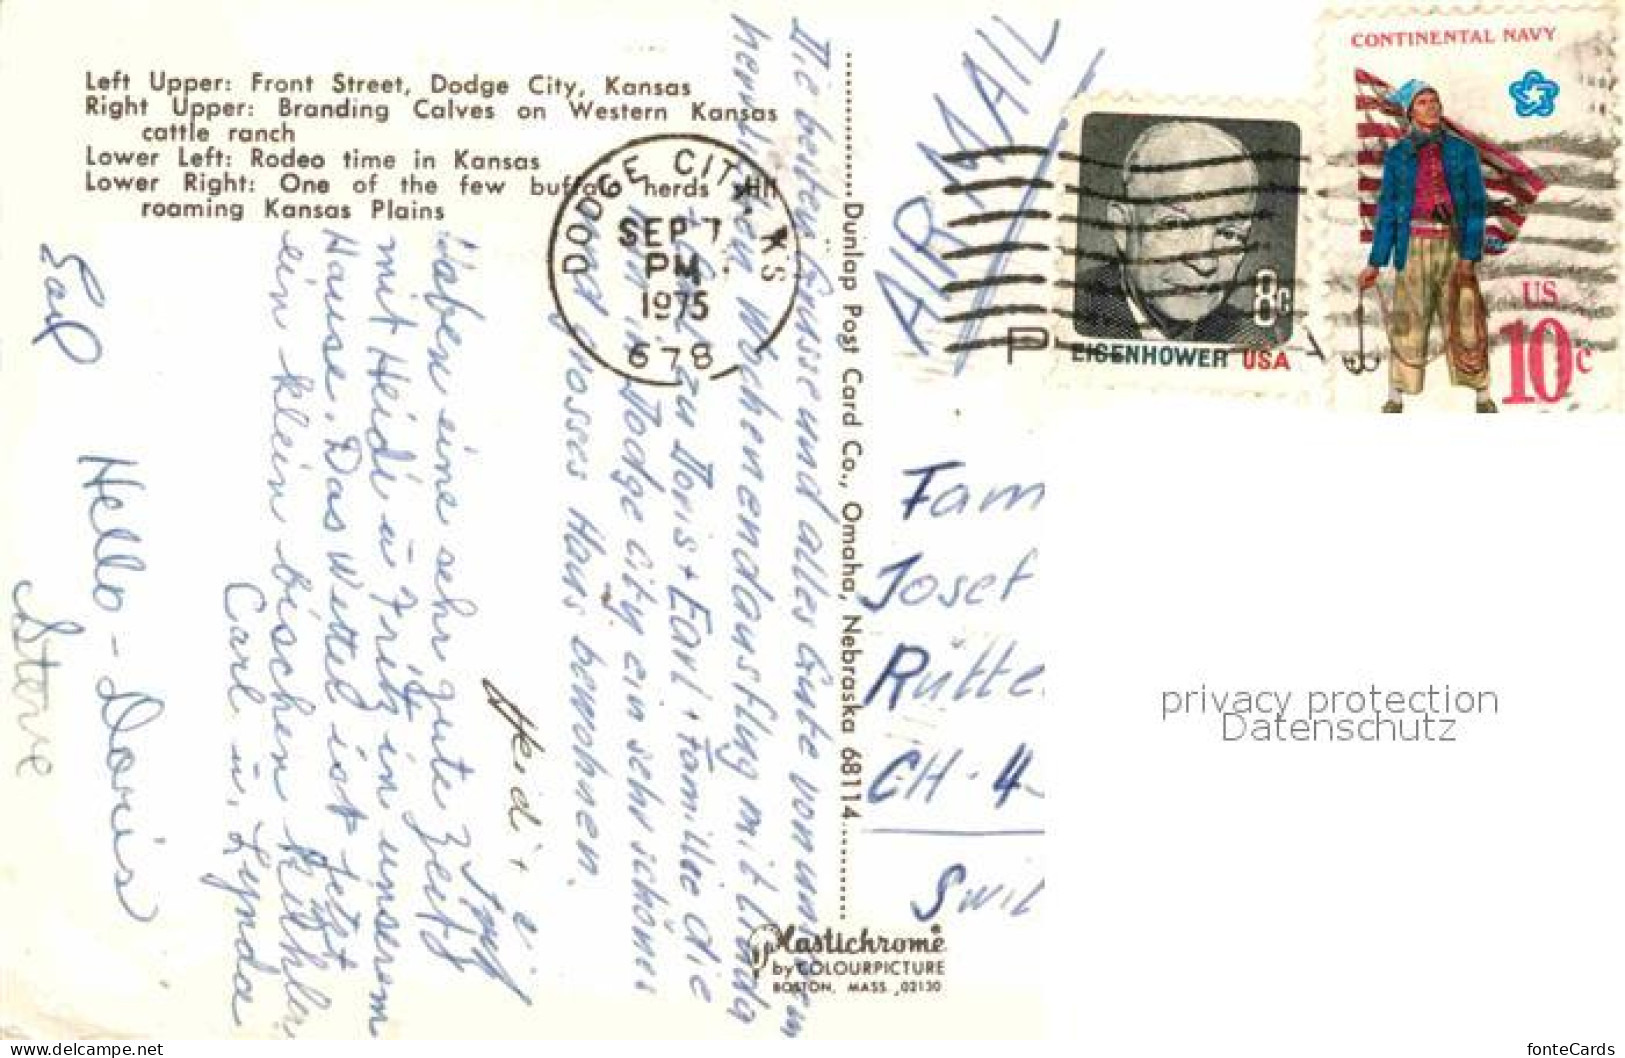 Left Upper: Front Street, Dodge City, Kansas
Right Upper: Branding Calves on Western Kansas
cattle ranch
Lower Left: Rodeo time in Kansas
Lower Right: One of the few buffalo herds still
roaming Kansas Plains
DODGE CITY, KS
SEP 7
PM
1975
678
AIR MAIL
CONTINENTAL NAVY
US
10c
8c
EISENHOWER USA
Die besten Grüsse und alles Gute von unserem
herrlichen Wochenendausflug mit Linda
+ Carl zu Doris + Earl + Familie die
hier in Dodge City ein sehr schönes
und grosses Haus bewohnen.
Heidi +
Haben eine sehr gute Zeit
mit Heidi u. Fritz in unserem
Hause. Das Wetter ist jetzt
ein klein bischen kühler
Carl u. Lynda
Earl
Hello - Doris
Steve
Dunlap Post Card Co., Omaha, Nebraska 68114
Fam
Josef
Rütte
CH - 4
Swit
Plastichrome®
by COLOURPICTURE
BOSTON, MASS. 02130
privacy protection
Datenschutz
https://www.delcampe.net
fonteCards